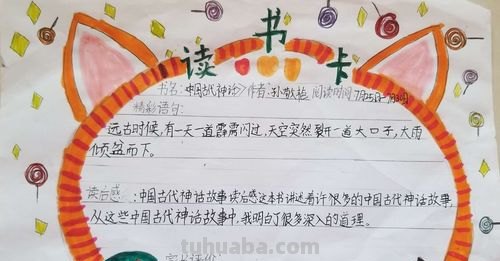 读书卡
书名:中国古代神话》作者:孙敬敏 阅读时间7月25日-7月30日
精彩语句:
远古时候,有一天一道霹雳闪过,天空突然裂开一道大口子,大雨
倾盆而下。
读后感:中国古代神话故事读后感这本书讲述着许很多的中国古代神话故事,
从这些中国古代神话故事中,我明白了很多深入的道理。
家长评价:
tuhuaba.com